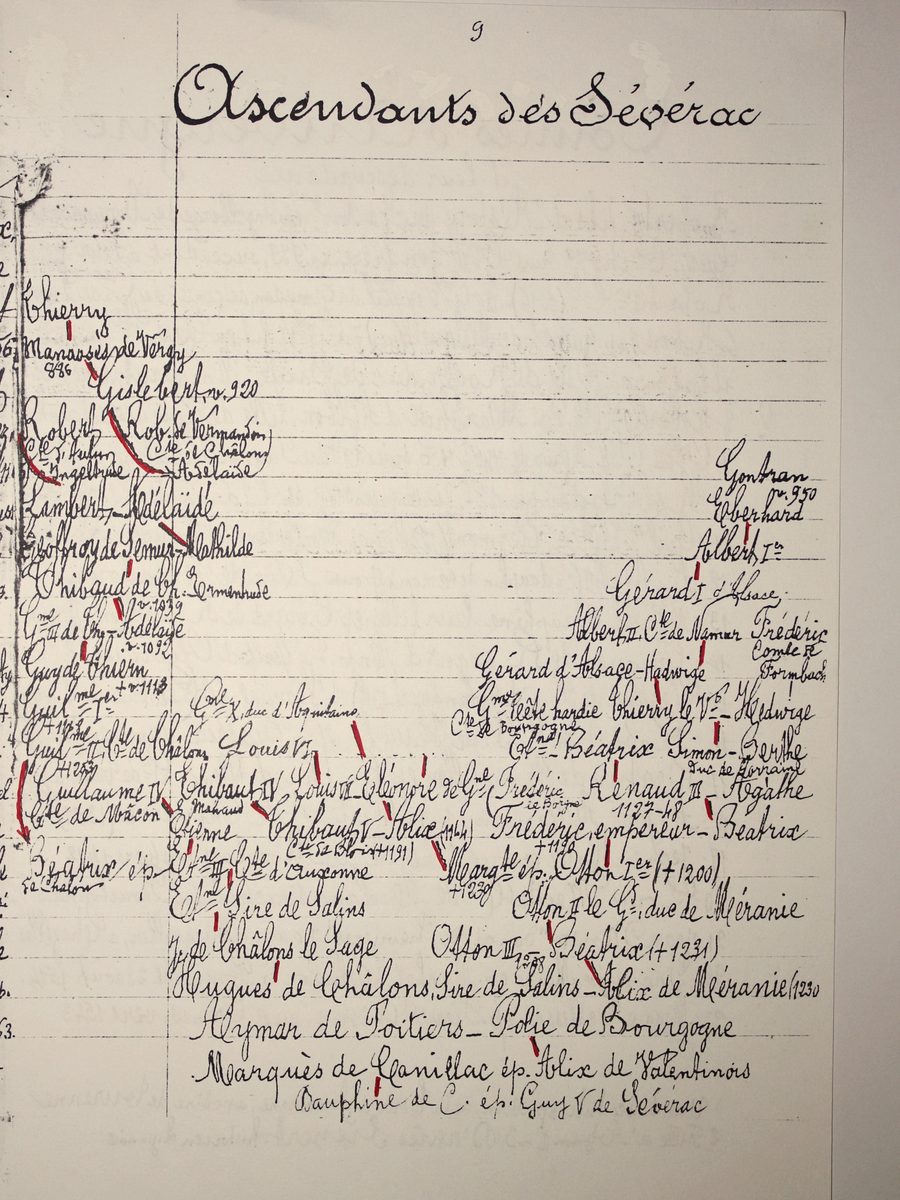 9
Ascendants des Sévérac
Thierry
Manassès de Vergy
886
Gislebert, v. 920
Robert Rob. de Vermandois
Cte de Châlons
Ingeltrude Adélaïde
Lambert - Adélaïde
Geoffroy de Semur - Mathilde
Thibaud de Ch. Ermentrude
v. 1039
Gme III de Thy - Adélaïde
v. 1092
Guy de Thiern
+ v. 1113
Guil me Ier
Guil me II Cte de Châlons
Gontran
v. 950
Eberhard
Albert Ier
Gérard I d'Alsace
Albert II Cte de Namur Frédéric
Comte de
Formbach
Gérard d'Alsace - Hadwige
Gme Tête hardie Thierry le Vt - Hedwige
Cte de Bourgogne
Gme X, duc d'Aquitaine
Louis VI
Etne - Béatrix Simon - Berthe
Duc de Lorraine
Guillaume IV Thibaut IV Louis VII - Eléonore de Gne (Frédéric Renaud III - Agathe
Cte de Mâcon Mahaud le Borgne 1127-48
Etienne Thibaut V - Alix (1164) Frédéric, empereur - Béatrix
Cte de Blois (+1191) +1190
Béatrix ép. Etne III Cte d'Auxonne Margte ép. Otton Ier (+1200)
de Chalon +1230
Etne Sire de Salins Otton II le Gd, duc de Méranie
J. de Châlons le Sage Otton III, Béatrix (+1231)
Hugues de Châlons, Sire de Salins - Alix de Méranie (1230
Aymar de Poitiers - Polie de Bourgogne
Marquès de Canillac ép. Alix de Valentinois
Dauphine de C. ép. Guy V de Sévérac